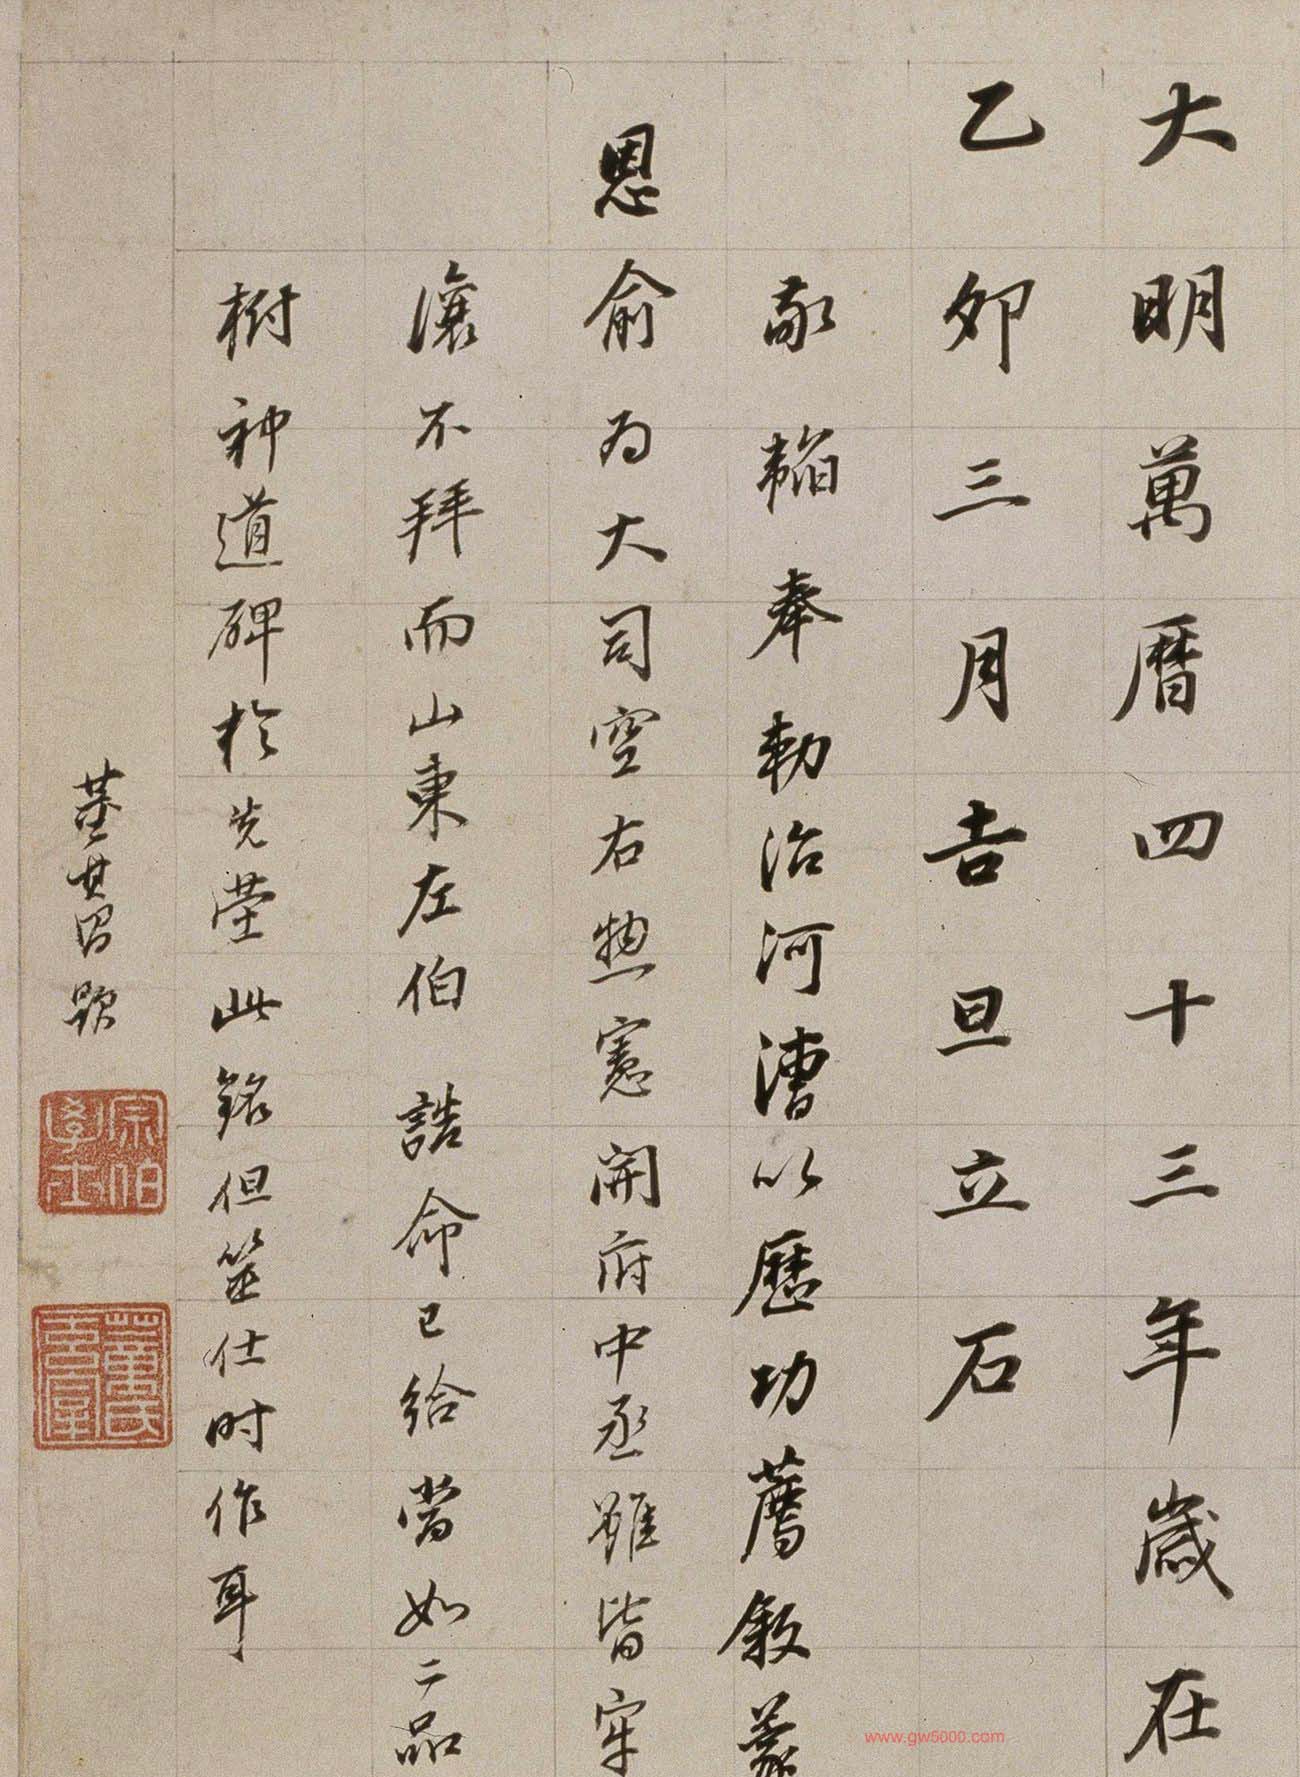 大明萬曆四十三年歲在
乙卯三月吉旦立石
敬韜奉勅治河漕以歷功薦敘蒙
恩俞為大司空右揔憲開府中丞雖皆牢
讓不拜而山東左伯 誥命已給當如二品
樹神道碑於先塋此銘但筮仕時作耳
董其昌題
宗伯學士
www.gw5000.com